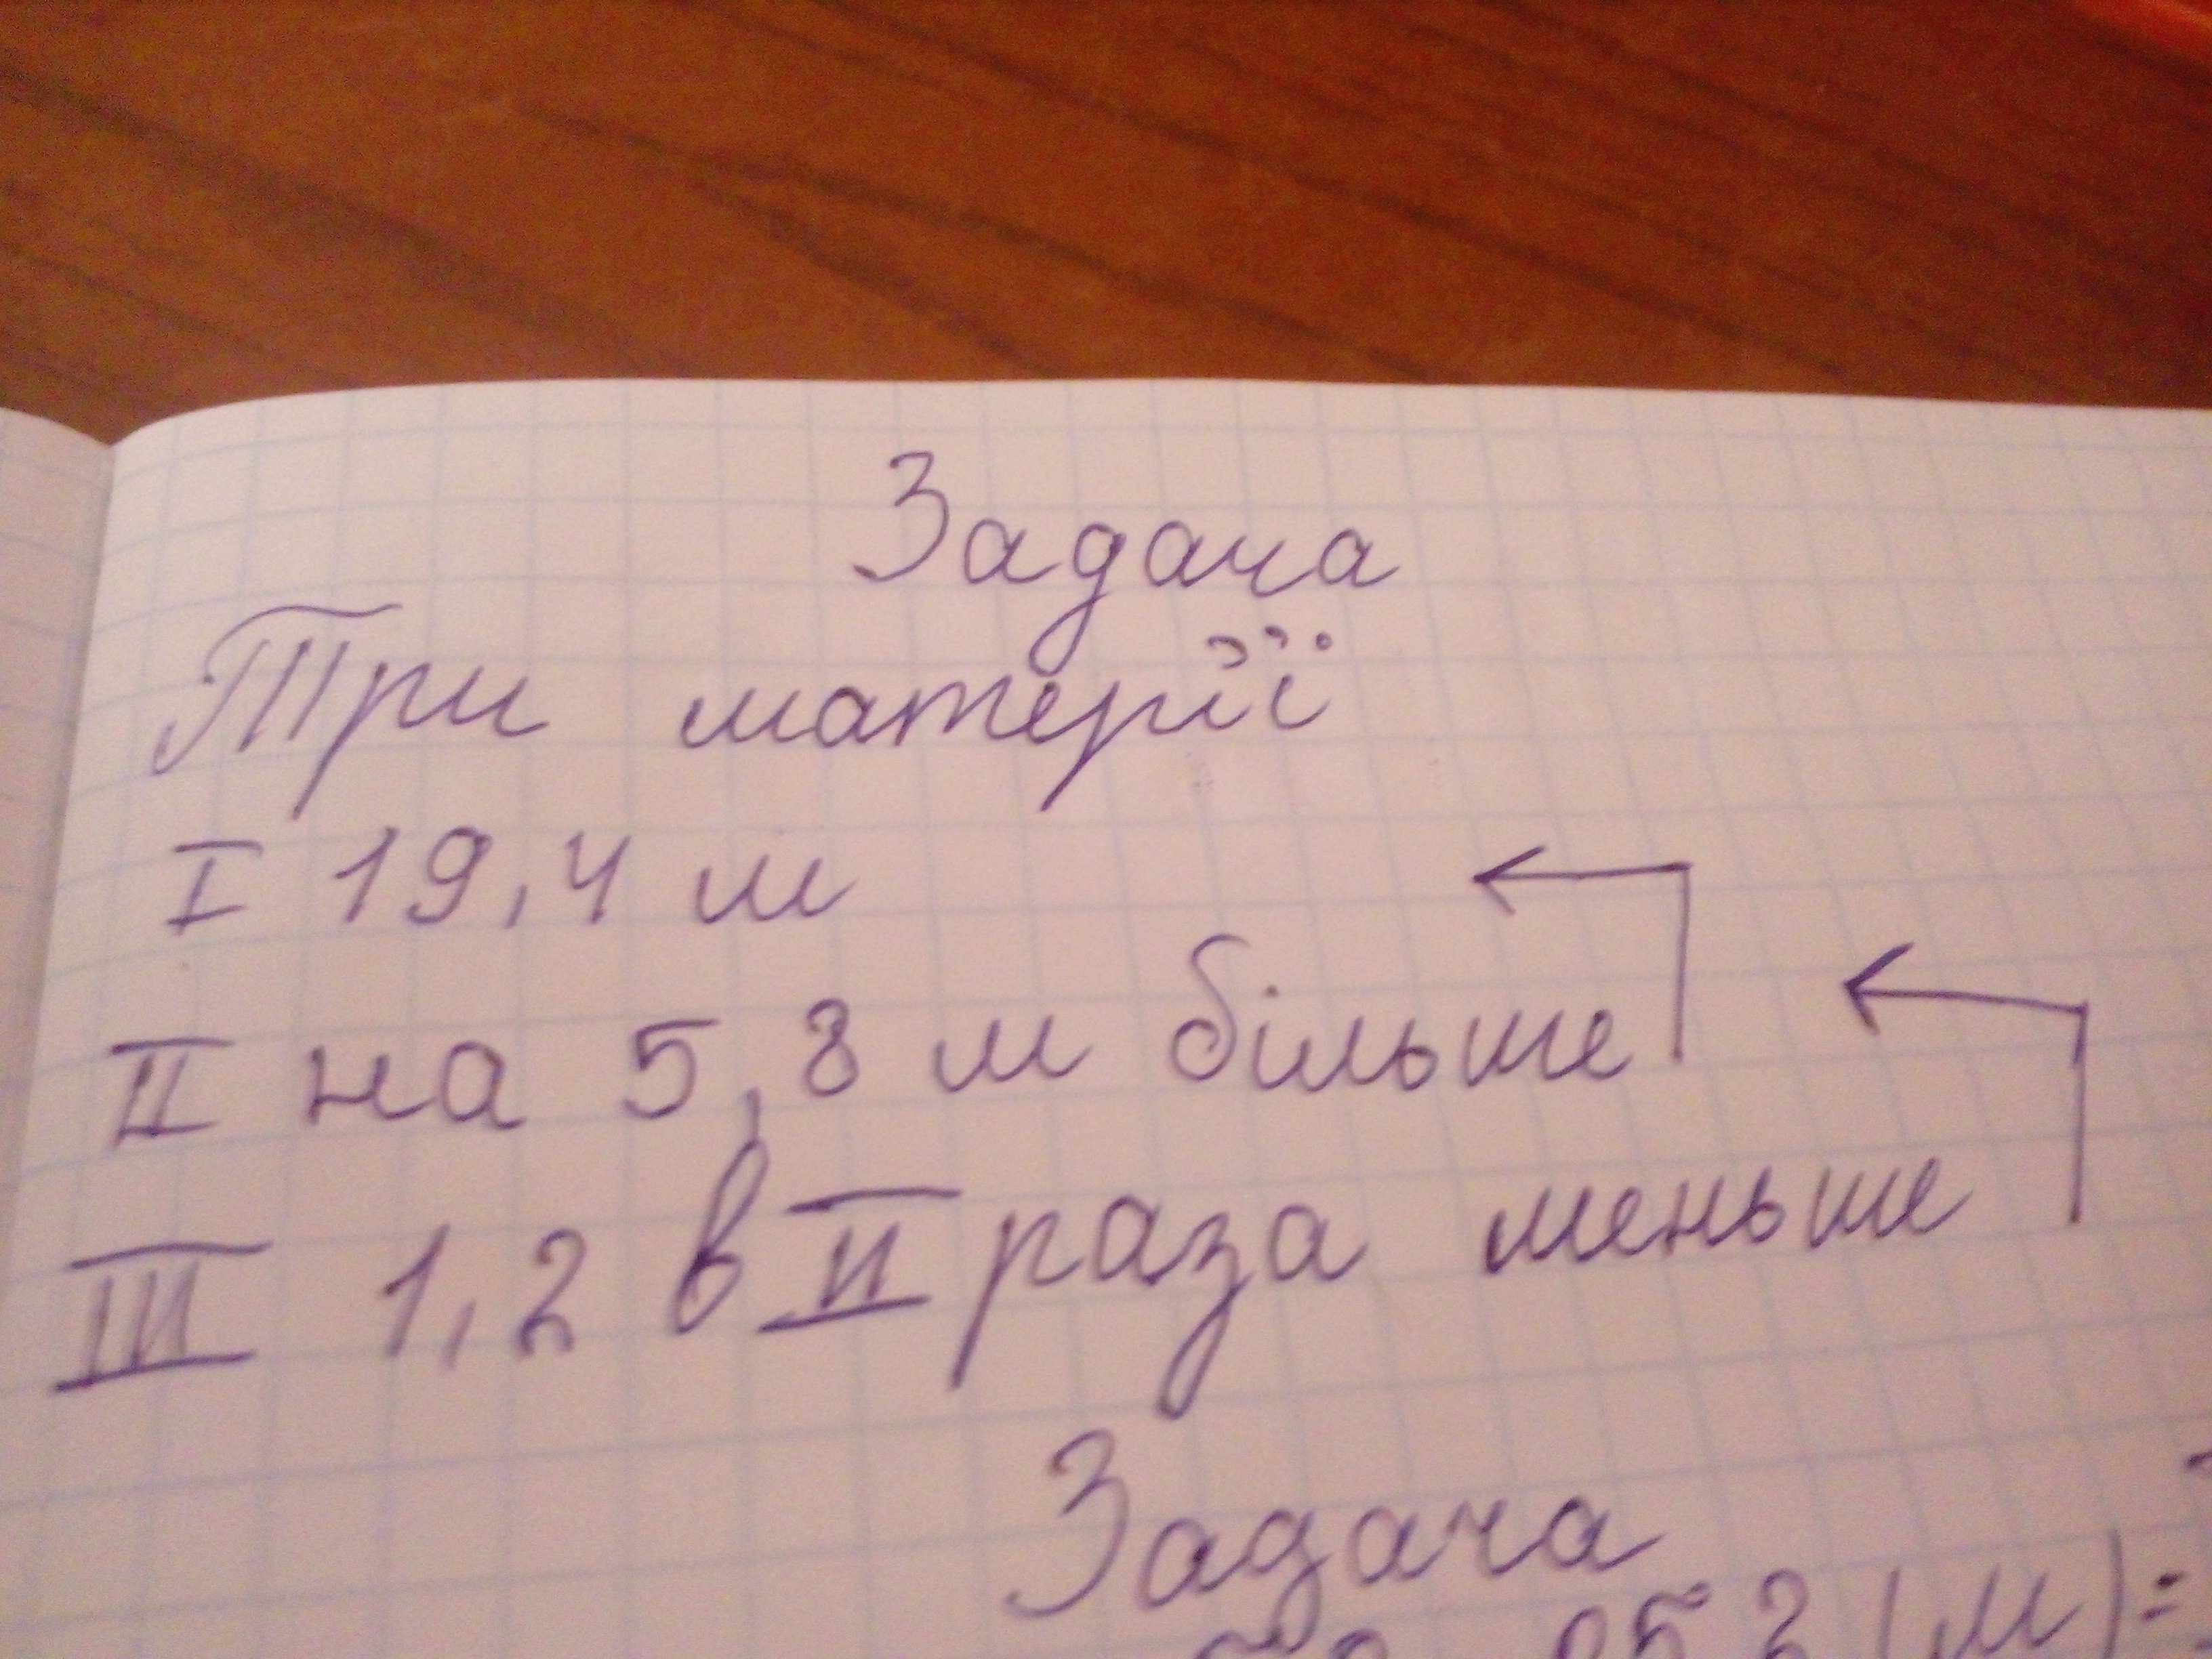 Задача
Три матерії
I 19,4 м
II на 5,8 м більше
III 1,2 в II раза меньше
Задача
25,2 (м) =